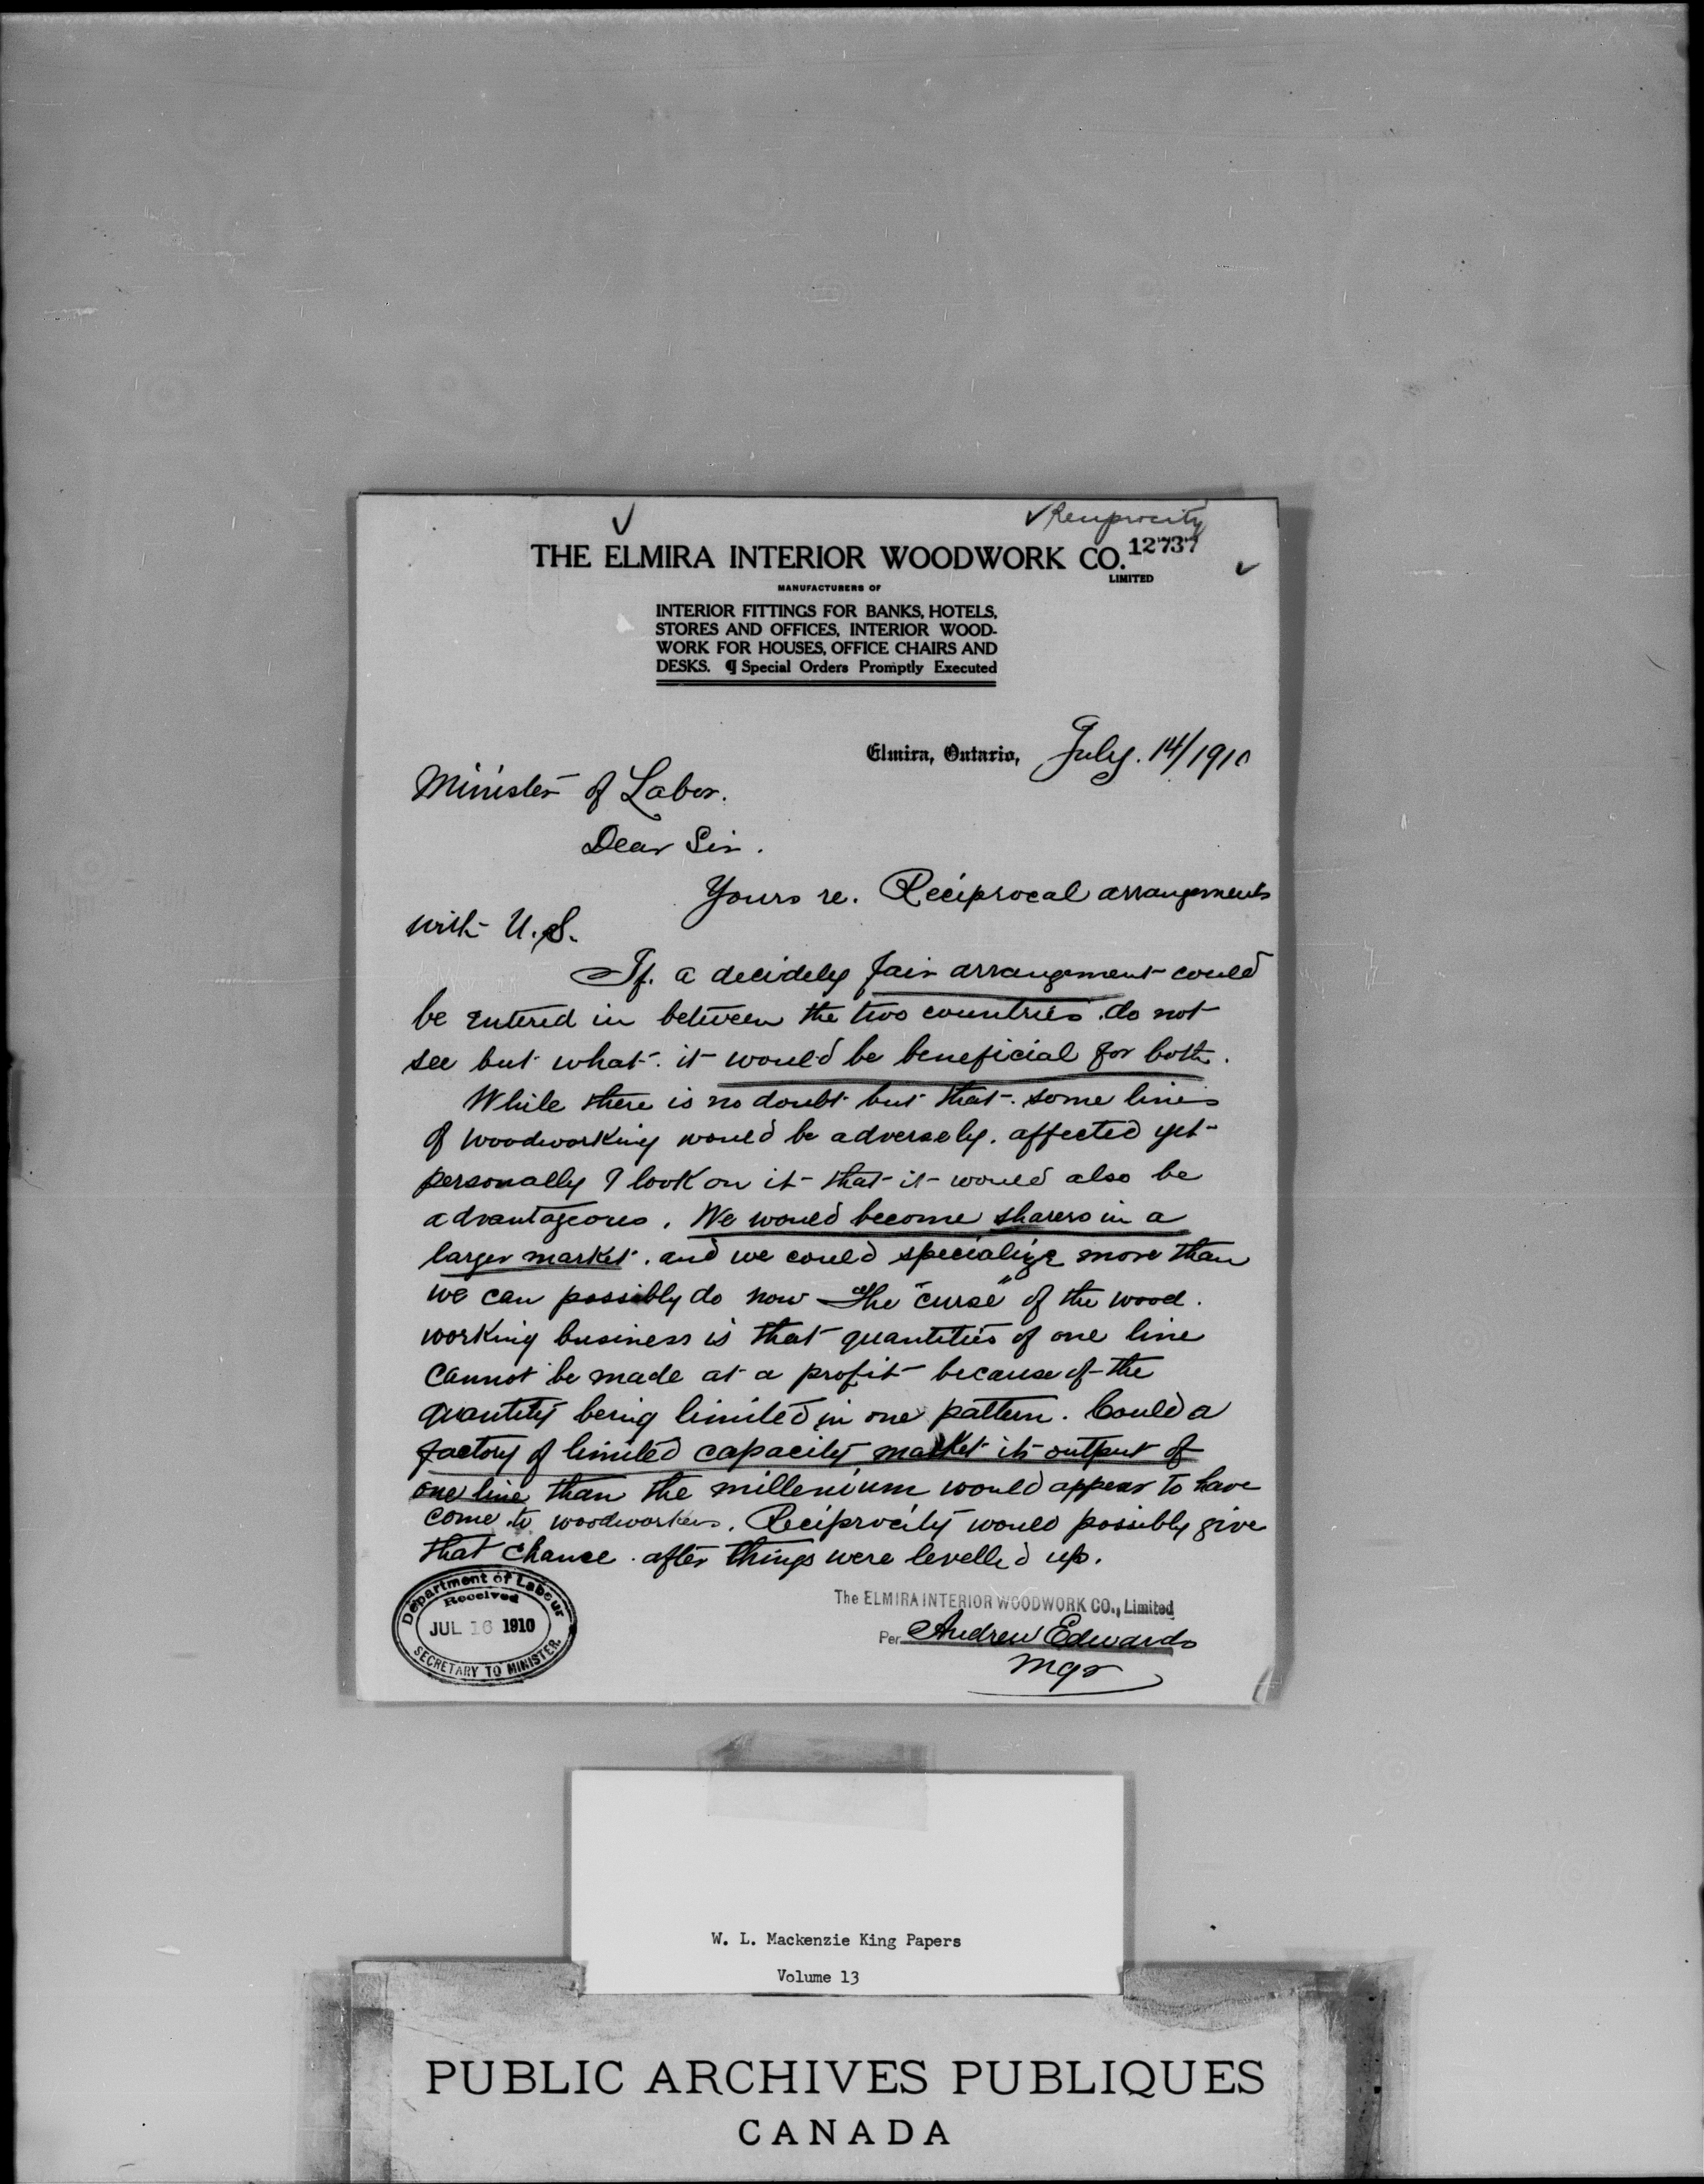 ✓ Reciprocity
12737
THE ELMIRA INTERIOR WOODWORK CO.
LIMITED
MANUFACTURERS OF
INTERIOR FITTINGS FOR BANKS, HOTELS,
STORES AND OFFICES, INTERIOR WOOD-
WORK FOR HOUSES, OFFICE CHAIRS AND
DESKS. ¶ Special Orders Promptly Executed
Elmira, Ontario, July. 14/1910
Minister of Labor.
Dear Sir.
Yours re. Reciprocal arrangements
with U.S.
If. a decidely fair arrangement could
be entered in between the two countries. do not
see but what. it would be beneficial for both.
While there is no doubt but that. some lines
of woodworking would be adversely. affected yet
personally I look on it that it would also be
advantageous. We would become sharers in a
larger market. and we could specialize more than
we can possibly do now The "curse" of the wood.
working business is that quantities of one line
cannot be made at a profit because of the
quantity being limited in one pattern. Could a
factory of limited capacity market its output of
one line than the millenium would appear to have
come to woodworkers. Reciprocity would possibly give
that chance. after things were levelled up.
The ELMIRA INTERIOR WOODWORK CO., Limited
Per Andrew Edwards
Mgr
Department of Labour
Received
JUL 16 1910
SECRETARY TO MINISTER.
W. L. Mackenzie King Papers
Volume 13
PUBLIC ARCHIVES PUBLIQUES
CANADA